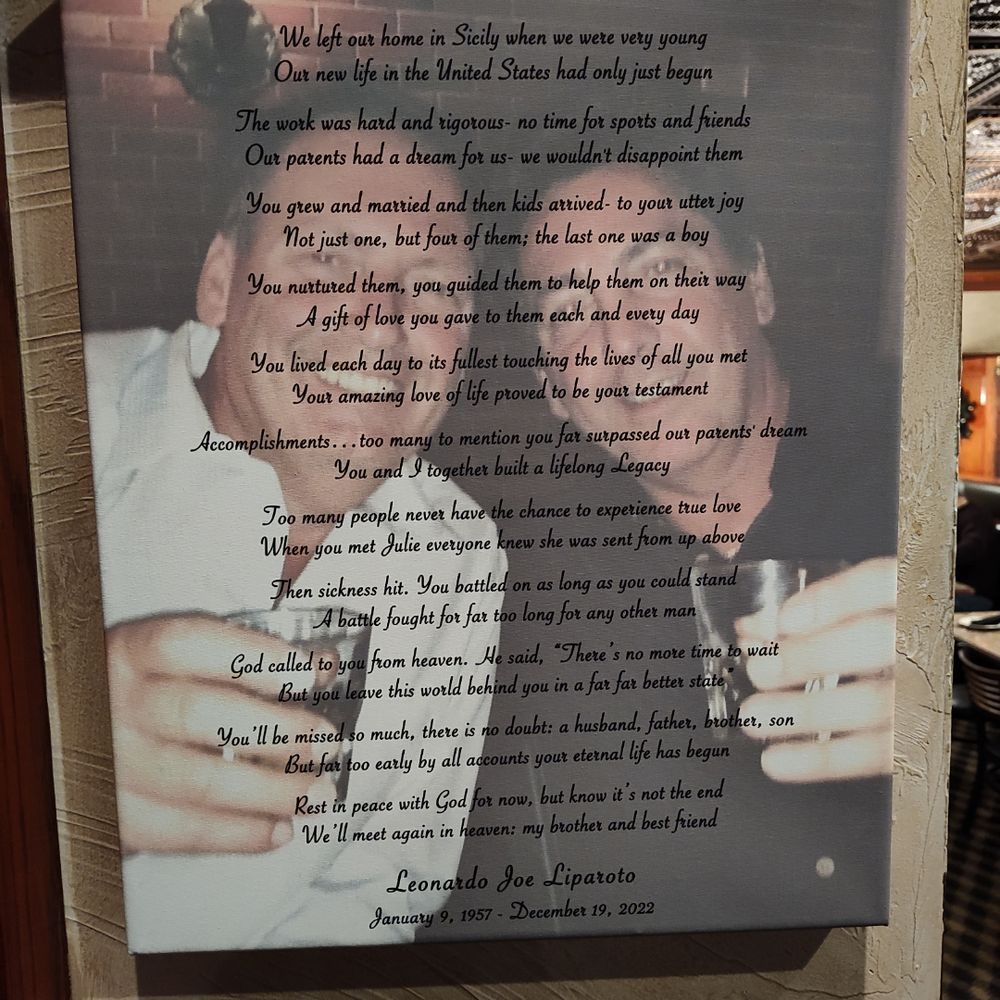 We left our home in Sicily when we were very young
Our new life in the United States had only just begun
The work was hard and rigorous- no time for sports and friends
Our parents had a dream for us- we wouldn't disappoint them
You grew and married and then kids arrived- to your utter joy
Not just one, but four of them; the last one was a boy
You nurtured them, you guided them to help them on their way
A gift of love you gave to them each and every day
You lived each day to its fullest touching the lives of all you met
Your amazing love of life proved to be your testament
Accomplishments...too many to mention you far surpassed our parents' dream
You and I together built a lifelong Legacy
Too many people never have the chance to experience true love
When you met Julie everyone knew she was sent from up above
Then sickness hit. You battled on as long as you could stand
A battle fought for far too long for any other man
God called to you from heaven. He said, “There's no more time to wait
But you leave this world behind you in a far far better state”
You'll be missed so much, there is no doubt: a husband, father, brother, son
But far too early by all accounts your eternal life has begun
Rest in peace with God for now, but know it's not the end
We'll meet again in heaven: my brother and best friend
Leonardo Joe Liparoto
January 9, 1957 - December 19, 2022